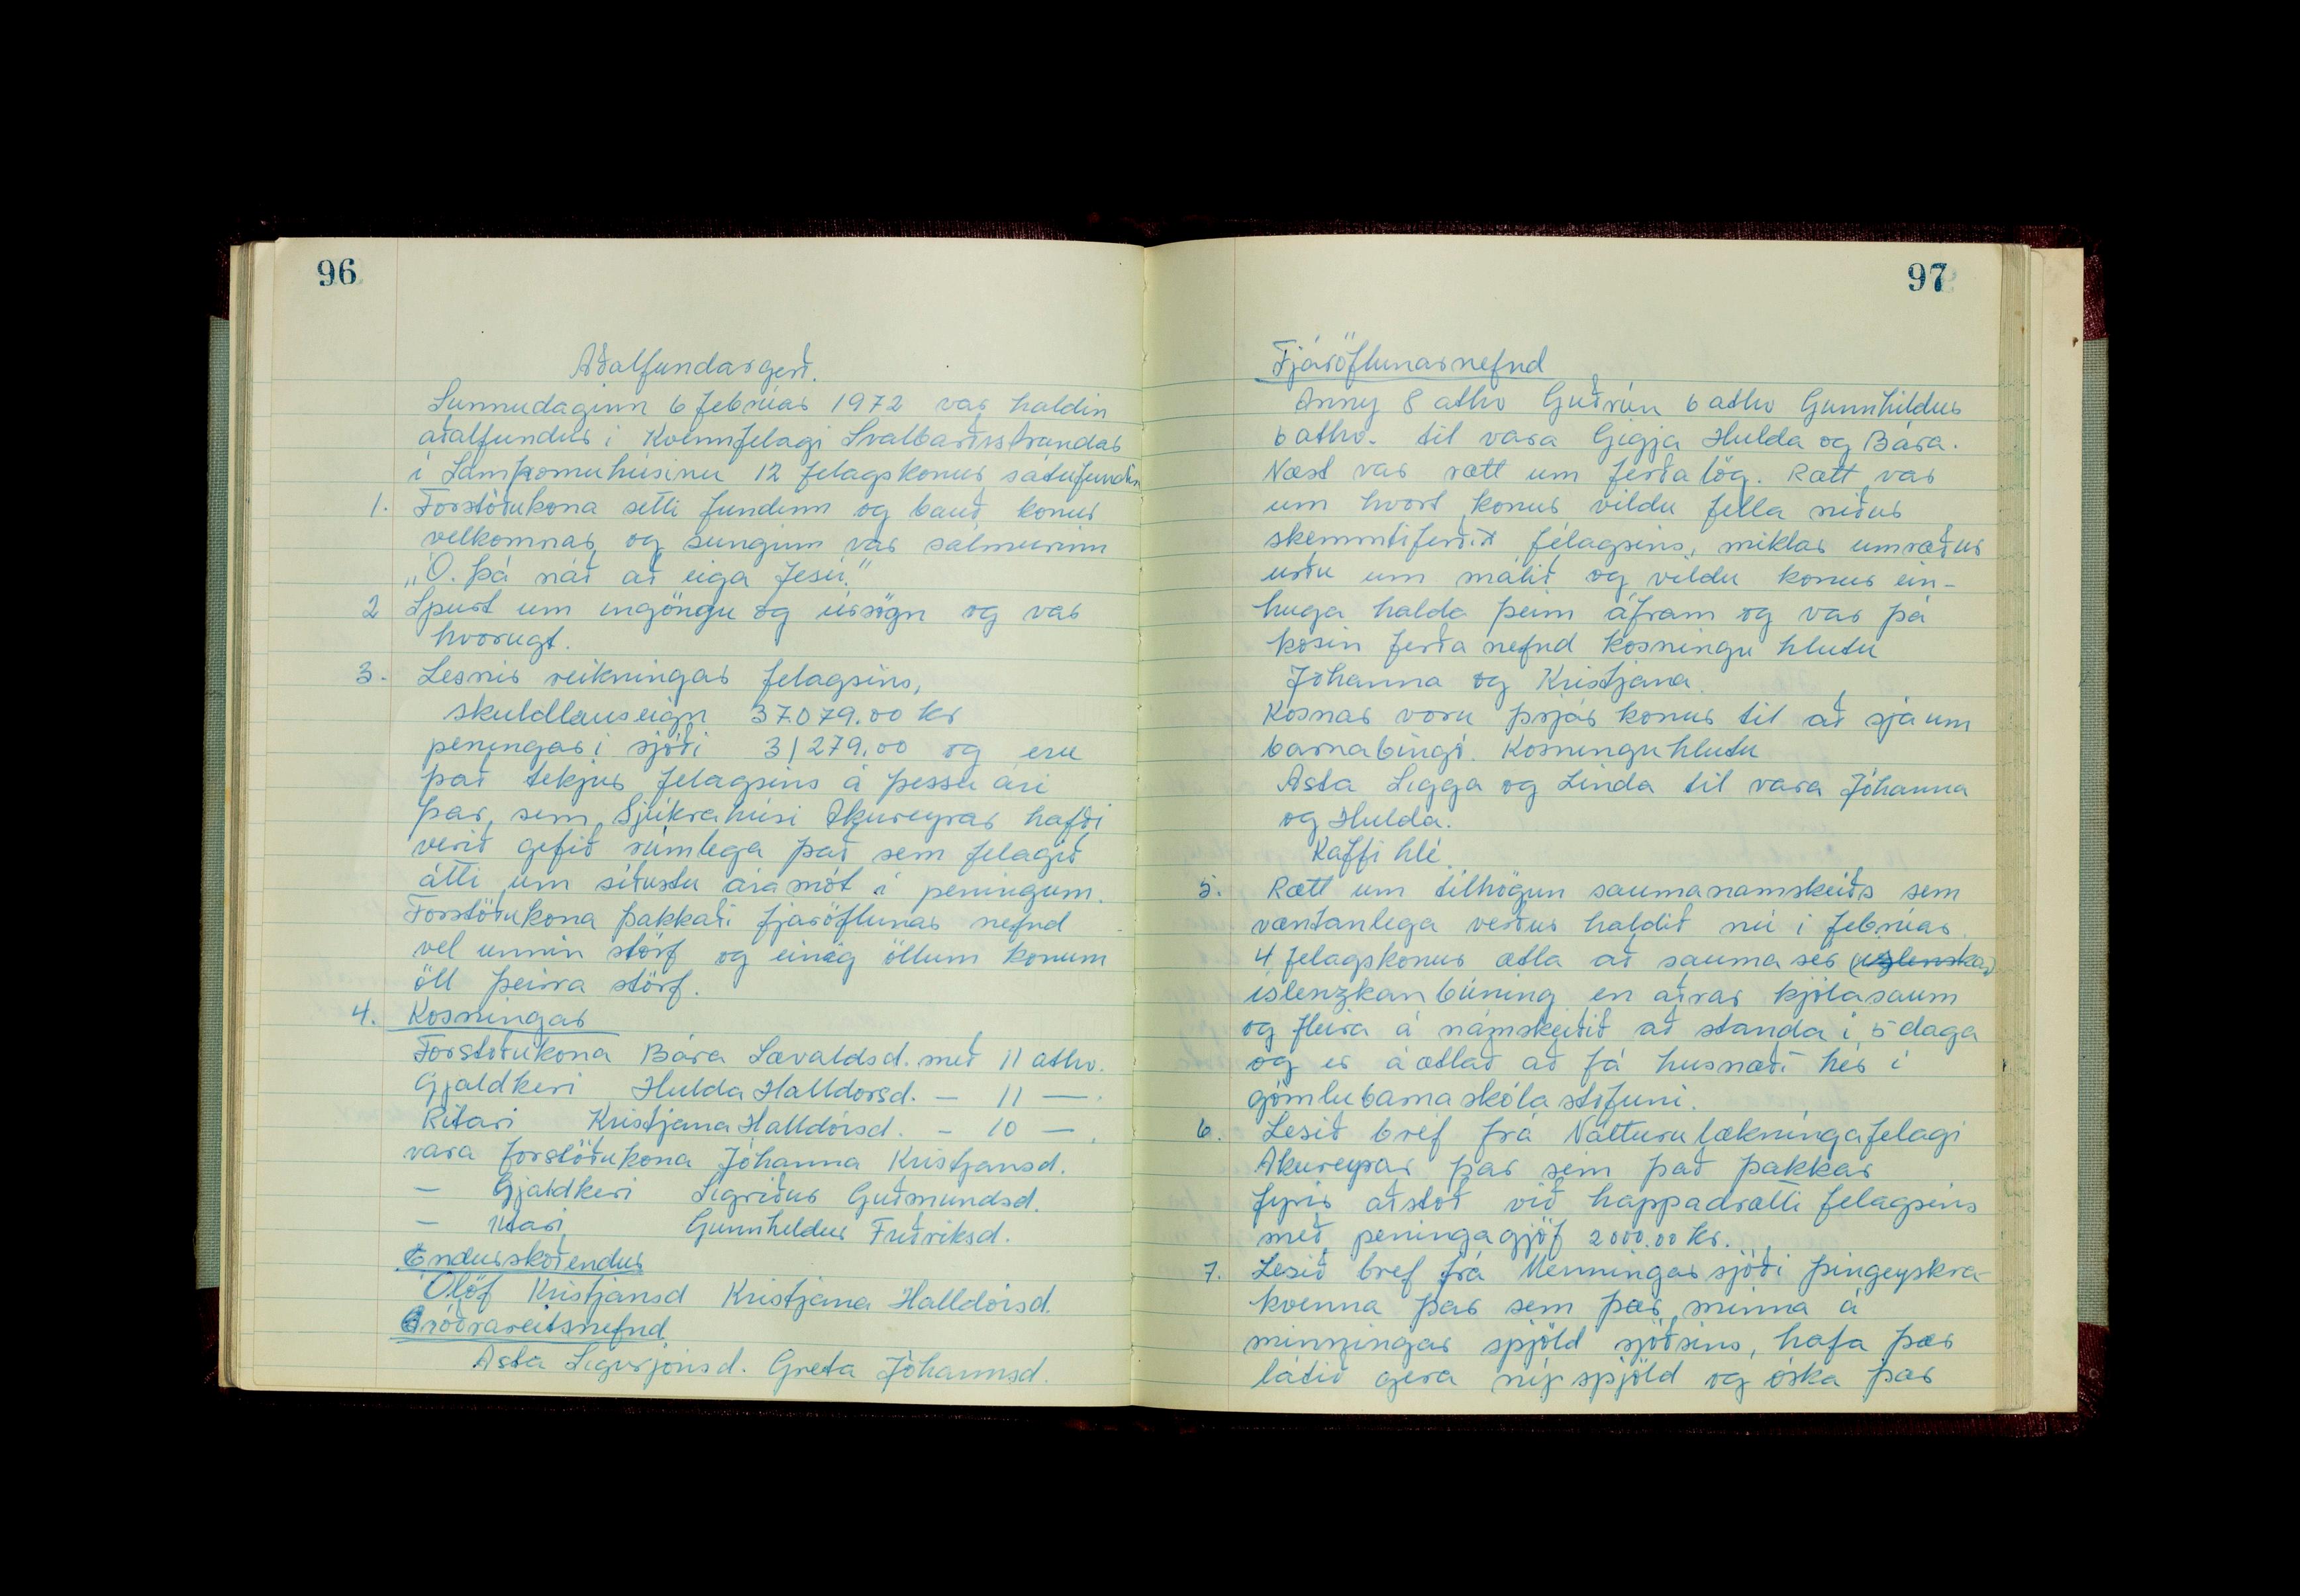 96
Aðalfundargerð.
Sunnudaginn 6 febrúar 1972 var haldin
aðalfundur í Kvennfelagi Svalbarðsstrandar
í Samkomuhúsinu 12 felagskonur sátu fundin
1. Forstöðukona setti fundinn og bauð konur
velkomnar og sunginn var sálmurinn
„Ó. þá náð að eiga Jesú."
2 Spurt um ingöngu og úrsögn og var
hvorugt.
3. Lesnir reikningar felagsins,
skuldlauseign 37.079.00 kr
peningar í sjóði 31279.00 og eru
það tekjur felagsins á þessu ári
þar sem Sjúkrahúsi Akureyrar hafði
verið gefið rúmlega það sem felagið
átti um síðustu áramót í peningum.
Forstöðukona þakkaði fjaröflunar nefnd
vel unnin störf og einig öllum konum
öll þeirra störf.
4. Kosningar
Forstöðukona Bára Sævaldsd. með 11 athv.
Gjaldkeri Hulda Halldorsd. — 11 —
Ritari Kristjana Halldórsd. — 10 —
vara forstöðukona Jóhanna Kristjansd.
— Gjaldkeri Sigriður Guðmundsd.
— ritari Gunnhildur Friðriksd.
Endurskoðendur
Ólöf Kristjansd Kristjana Halldórsd.
Gróðrareitsnefnd
Asta Sigurjónsd. Greta Jóhannsd.
97
Fjáröflunarnefnd
Anny 8 athv Guðrún 6 athv Gunnhildur
6 athv. til vara Gigja Hulda og Bára.
Næst var rætt um ferðalög. Rætt var
um hvort konur vildu fella niður
skemmtiferðir félagsins, miklar umræður
urðu um málið og vildu konur ein-
huga halda þeim áfram og var þá
kosin ferða nefnd kosningu hlutu
Jóhanna og Kristjana.
Kosnar voru þrjár konur til að sjá um
barnabingó. Kosningu hlutu
Asta Sigga og Linda til vara Jóhanna
og Hulda.
Kaffi hlé.
5. Rætt um tilhögun saumanamskeiðs sem
væntanlega verður haldið nú í febrúar.
4 felagskonur ætla að sauma sér (íslenskan)
íslenzkan búning en aðrar kjólasaum
og fleira á námskeiðið að standa í 5 daga
og er áætlað að fá husnæði hér í
gömlubarnaskólastofuni.
6. Lesið bréf frá Nátturulækningafelagi
Akureyrar þar sem það þakkar
fyrir aðstoð við happadrætti felagsins
með peningagjöf 2000.00 kr.
7. Lesið bref frá Menningarsjóði þingeyskra
kvenna þar sem þær minna á
minningar spjöld sjóðsins, hafa þær
látið gera ný spjöld og óska þær